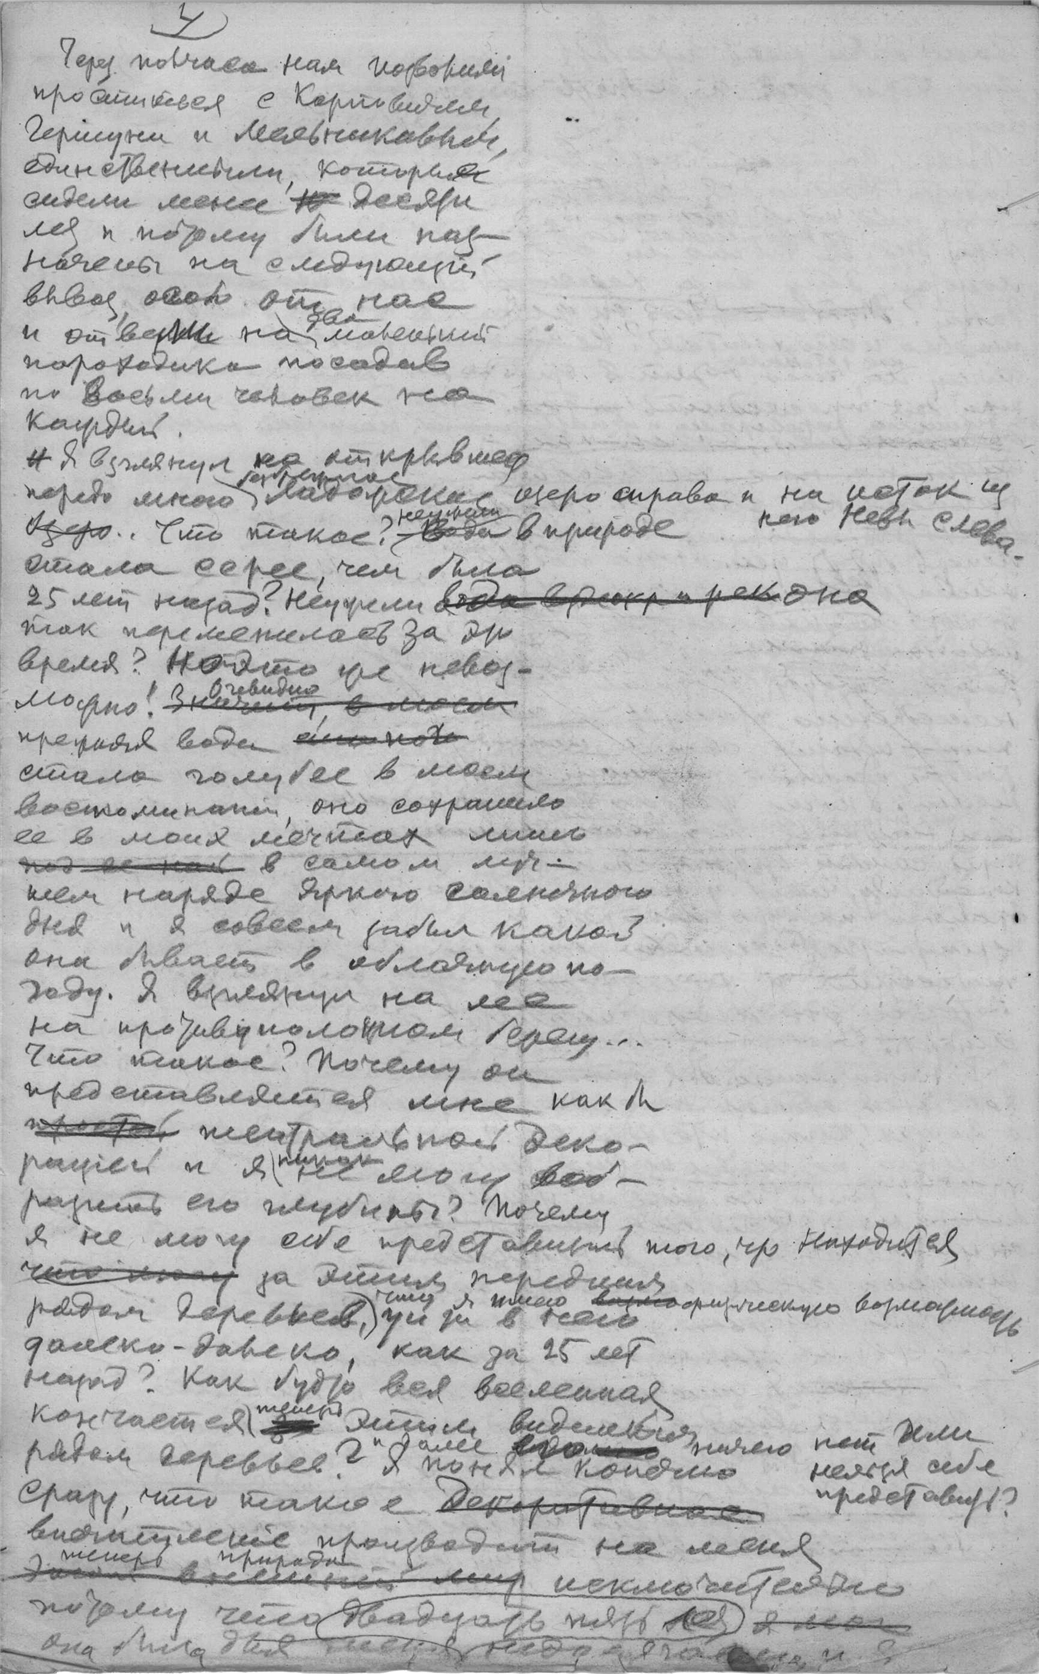 4
Через полчаса нам позволили
проститься с Карповичем,
Гершуни и Мельниковым,
единственными, которые
сидели менее десяти
лет и потому были наз-
начены на следующий
вывоз, особо от нас
и отвезли на два маленький
пароходика посадив
по восьми человек на
каждый.
Я взглянул на открывшееся
передо мною безбрежное Ладожское озеро справа и на исток из
него Невы слева.
Озеро.. Что такое? Неужели вода в природе
стала серее, чем была
25 лет назад? Неужели вода в озерах и реках она
так переменилась за это
время? Но это же невоз-
можно! Значит, очевидно, в моем
прежняя вода
стала голубее в моем
воспоминании, оно сохранило
ее в моих мечтах лишь
в самом луч-
шем наряде яркого солнечного
дня и я совсем забыл какой
она бывает в облачную по-
году. Я взглянул на лес
на противуположном берегу...
Что такое? Почему он
представляется мне как бы
простой театральной деко-
рацией и я никак не могу вооб-
разить его глубины? Почему
я не могу себе представить того, что находится
за этим передним
рядом деревьев, что я имею физическую возможность
уйти в него
далеко-далеко, как за 25 лет
назад? Как будто вся вселенная
кончается теперь этим видимым
рядом деревьев и далее ничего нет или
нельзя себе
представить?
Я понял конечно
сразу, что такое декоративное
впечатление производит на меня
теперь природа
внешний мир исключительно
потому что двадцать пять лет я
она была для меня недосягаема и я